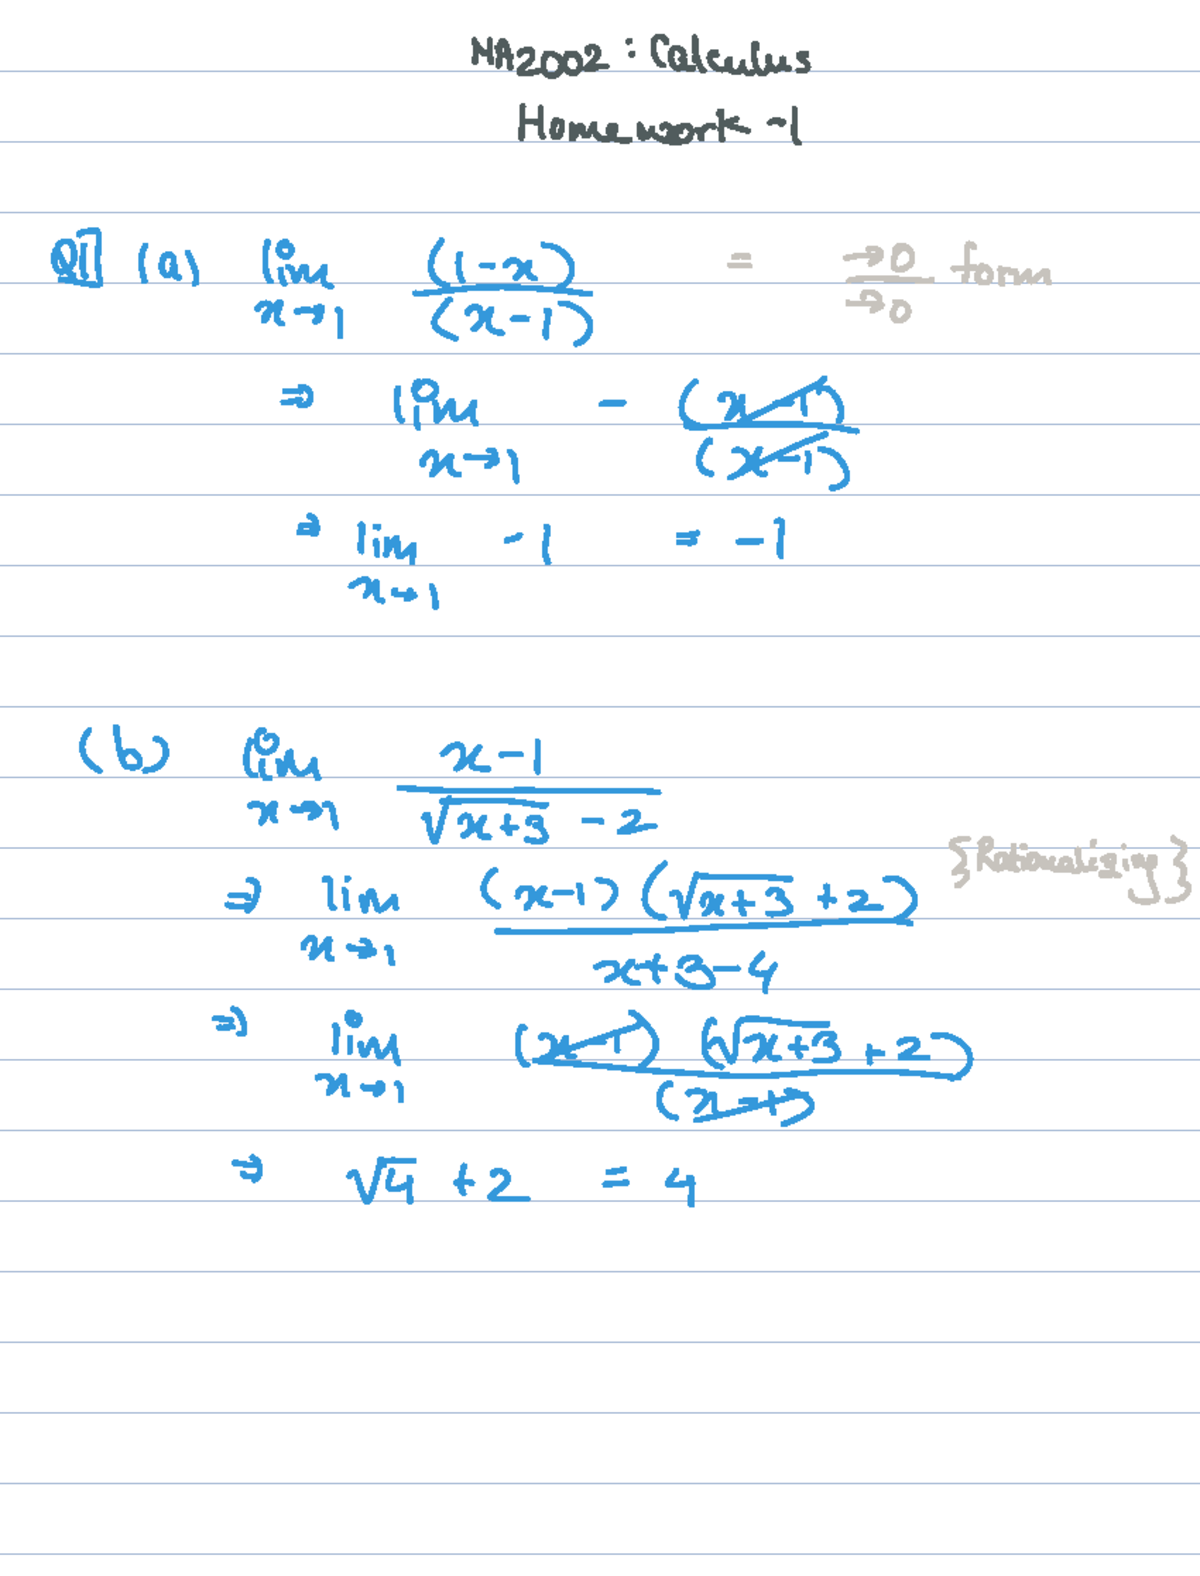 MA2002 : Calculus
Homework -1
Q1] (a) lim x→1 (1-x)/(x-1) = →0/→0 form
⇒ lim x→1 - (x-1)/(x-1)
⇒ lim x→1 -1 = -1
(b) lim x→1 x-1/√(x+3) -2
⇒ lim x→1 (x-1)(√(x+3) +2)/x+3-4 {Rationalizing}
⇒ lim x→1 (x-1) (√(x+3) +2)/(x-1)
⇒ √4 +2 = 4